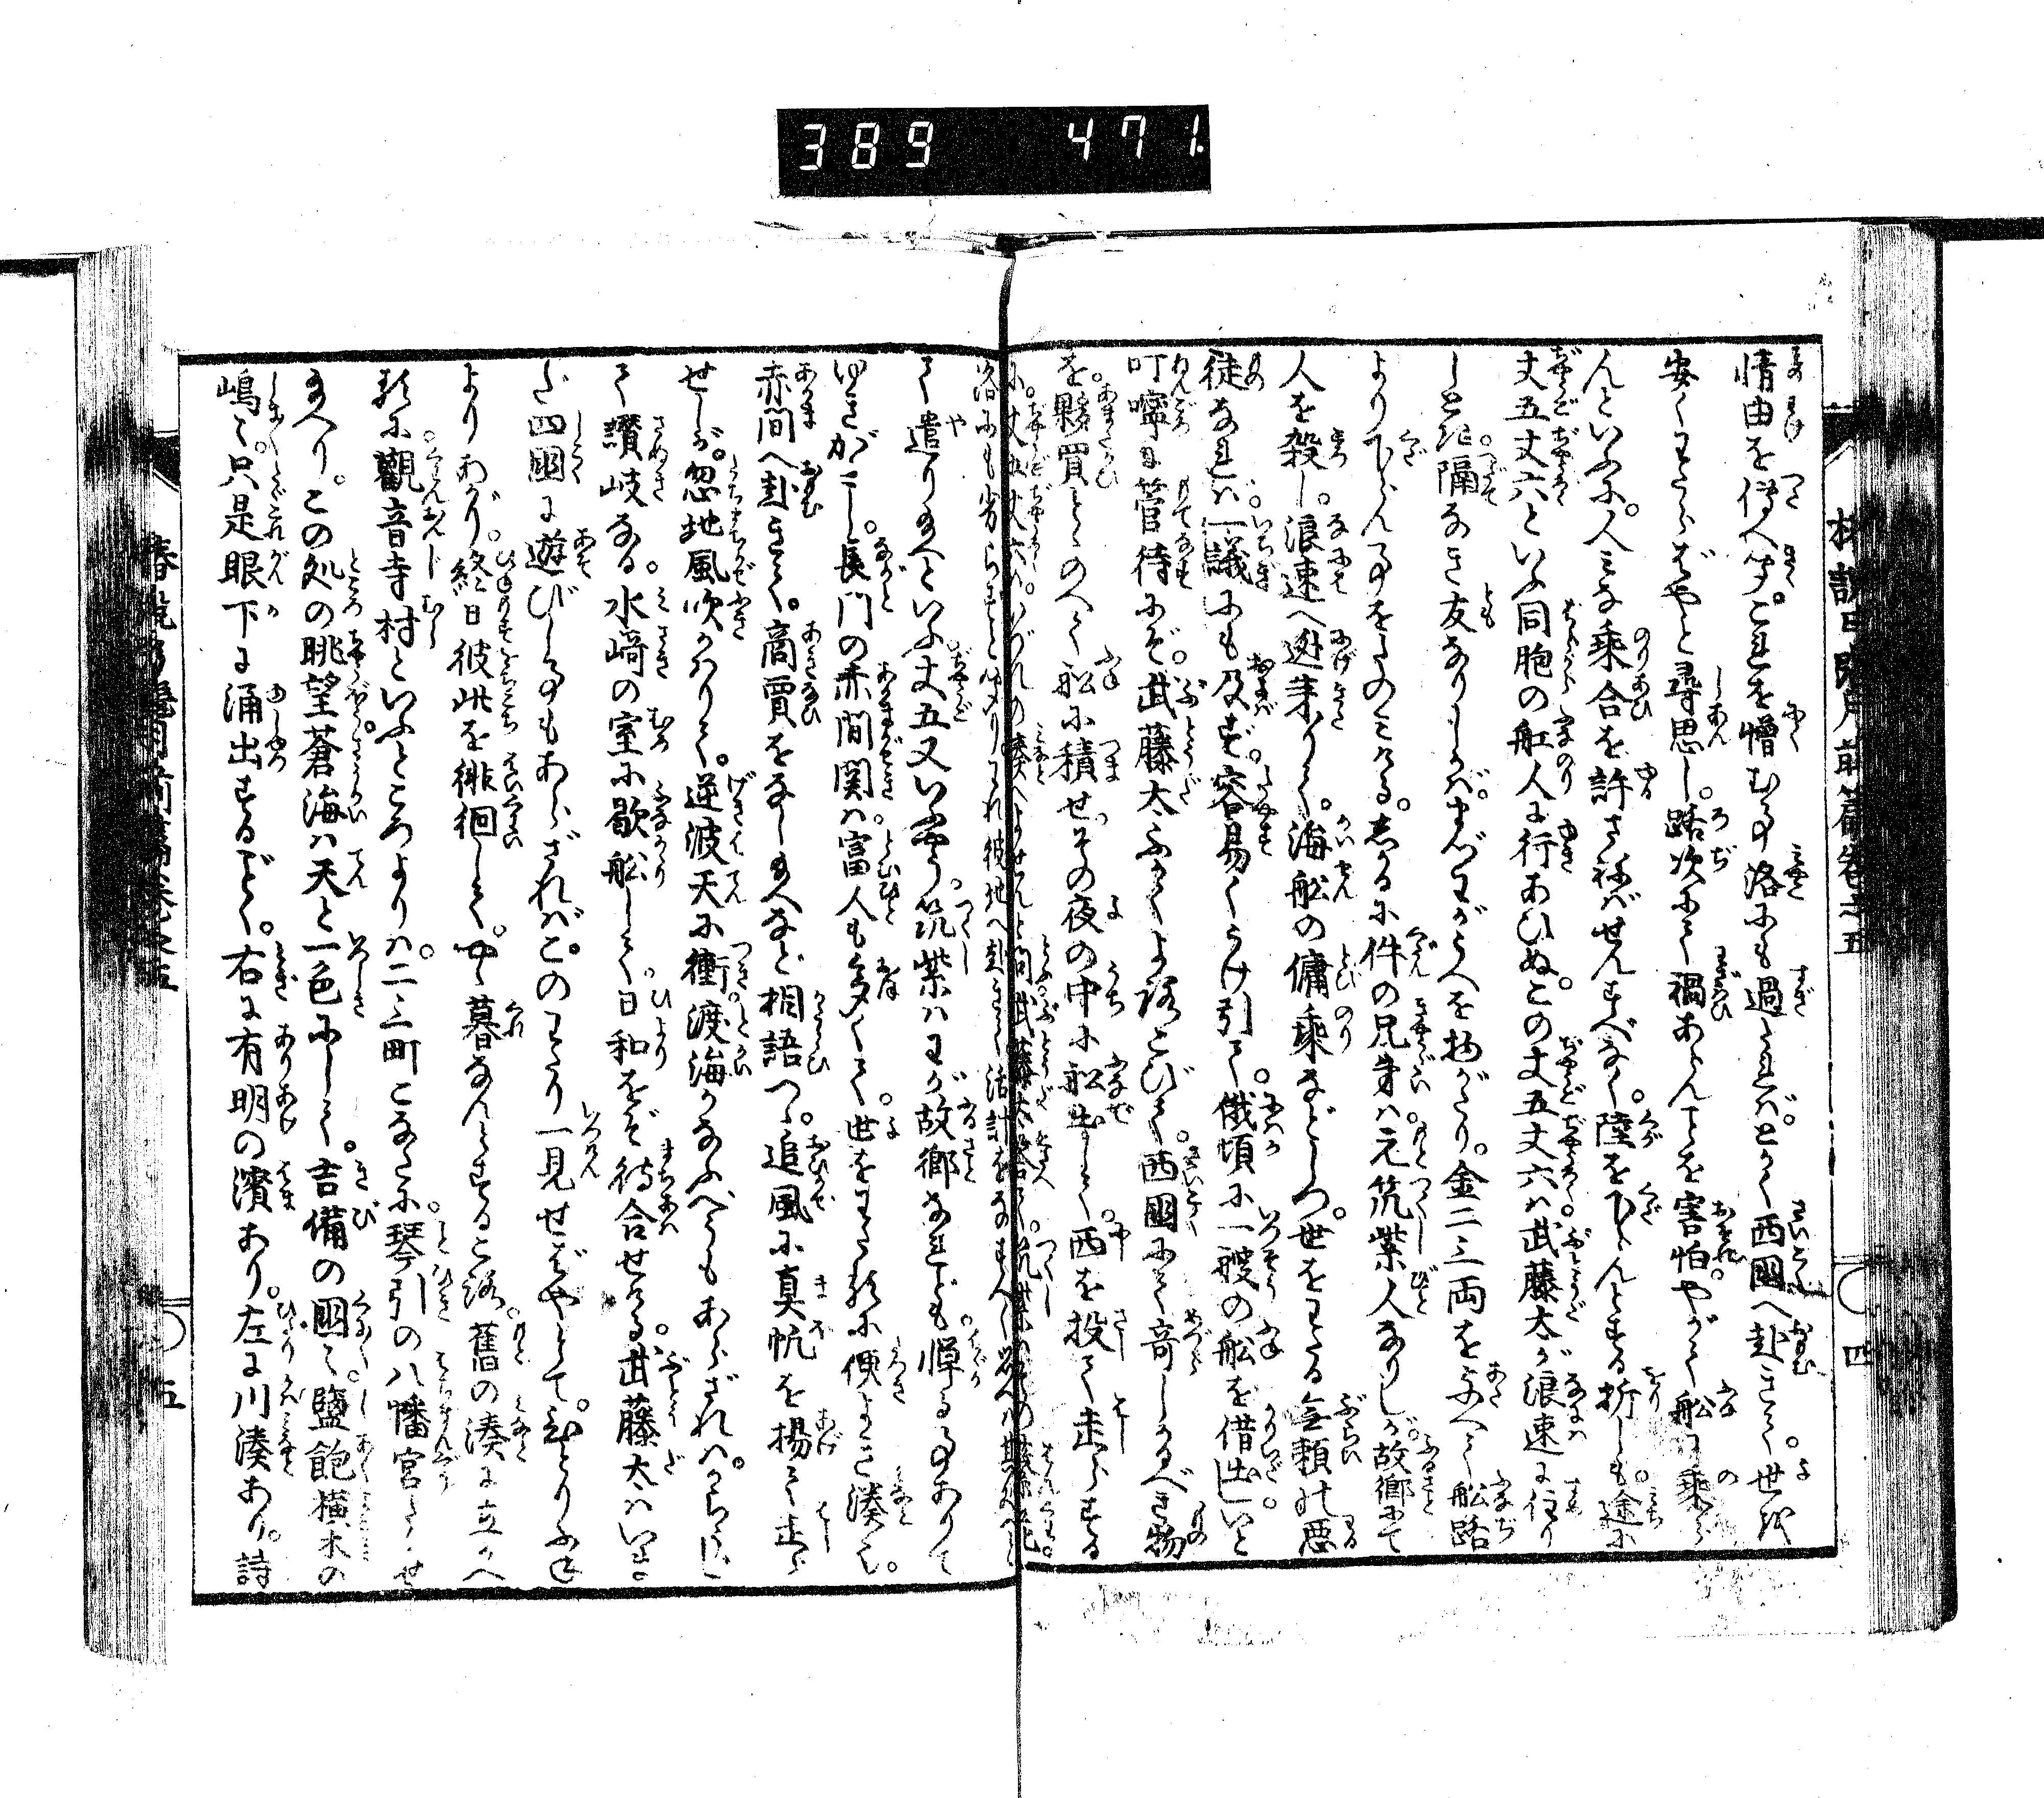 389 471.
情由を傳へ聞。これを憎むもの洛にも過たれば。とかく西國へ赴きて。世を
安くわたらばやと尋思し。路次にて禍あらんことを害怕。やがて船に乗ら
んといふに。人みな乗合を許さねばせんすべなく。陸を下らんとする折しも。途に
丈五丈六といふ同胞の舩人に行あひぬ。この丈五丈六は武藤太が浪速に住り
しとき。隔なき友なりしかば。まづわがうへを物がたり。金二三両を与へて船路
より下らん事をたのみける。しかるに件の兄弟は。元筑紫人なりしが。故郷にて
人を殺し。浪速へ迯来りて。海舩の傭乗などしつ。世をわたる無頼の悪
徒なれば。一議にも及ばず。容易くうけ引て。俄頃に一艘の舩を借出し。いと
叮嚀に管待にぞ。武藤太ふかくよろこびて。西國にて奇しかるべき物
を。夥買とゝのへて舩に積せ。その夜の中に舩出して。西を投て走らする
に。丈五丈六は。いづれの湊へよせんと問。武藤太答て。筑紫
洛にも劣らずと聞り。われ彼地へ赴きて活計をなすべし
て遣り給へといふ。丈五又いふやう。筑紫はわが故郷なれども。憚る事ありて
ゆきがたし。長門の赤間関は。富人も多くて。世をわたるに便よき湊也。
赤間へ赴きて。商賈をなし給へなど相語つゝ。追風に真帆を揚て走ら
せしが。忽地風吹かはりて。逆波天に衝。渡海かなふべうもあらざれば。からうじ
て讃岐なる。水﨑の室に歇舩して。日和をぞ待合せける。武藤太はいまだ
四國に遊びし事もあらざれば。このわたり一見せばやとて。ひとりふね
よりあがり。終日彼此を徘徊して。やゝ暮なんとするころ。舊の湊に立かへ
るに。觀音寺村といふところより。二三町こなたに。琴引の八幡宮たゝせ
給へり。この処の眺望蒼海は天と一色にして。吉備の國々。鹽飽横木の
嶋々。只是眼下に涌出するごとく。右に有明の濱あり。左に川湊あり。詩
四
五